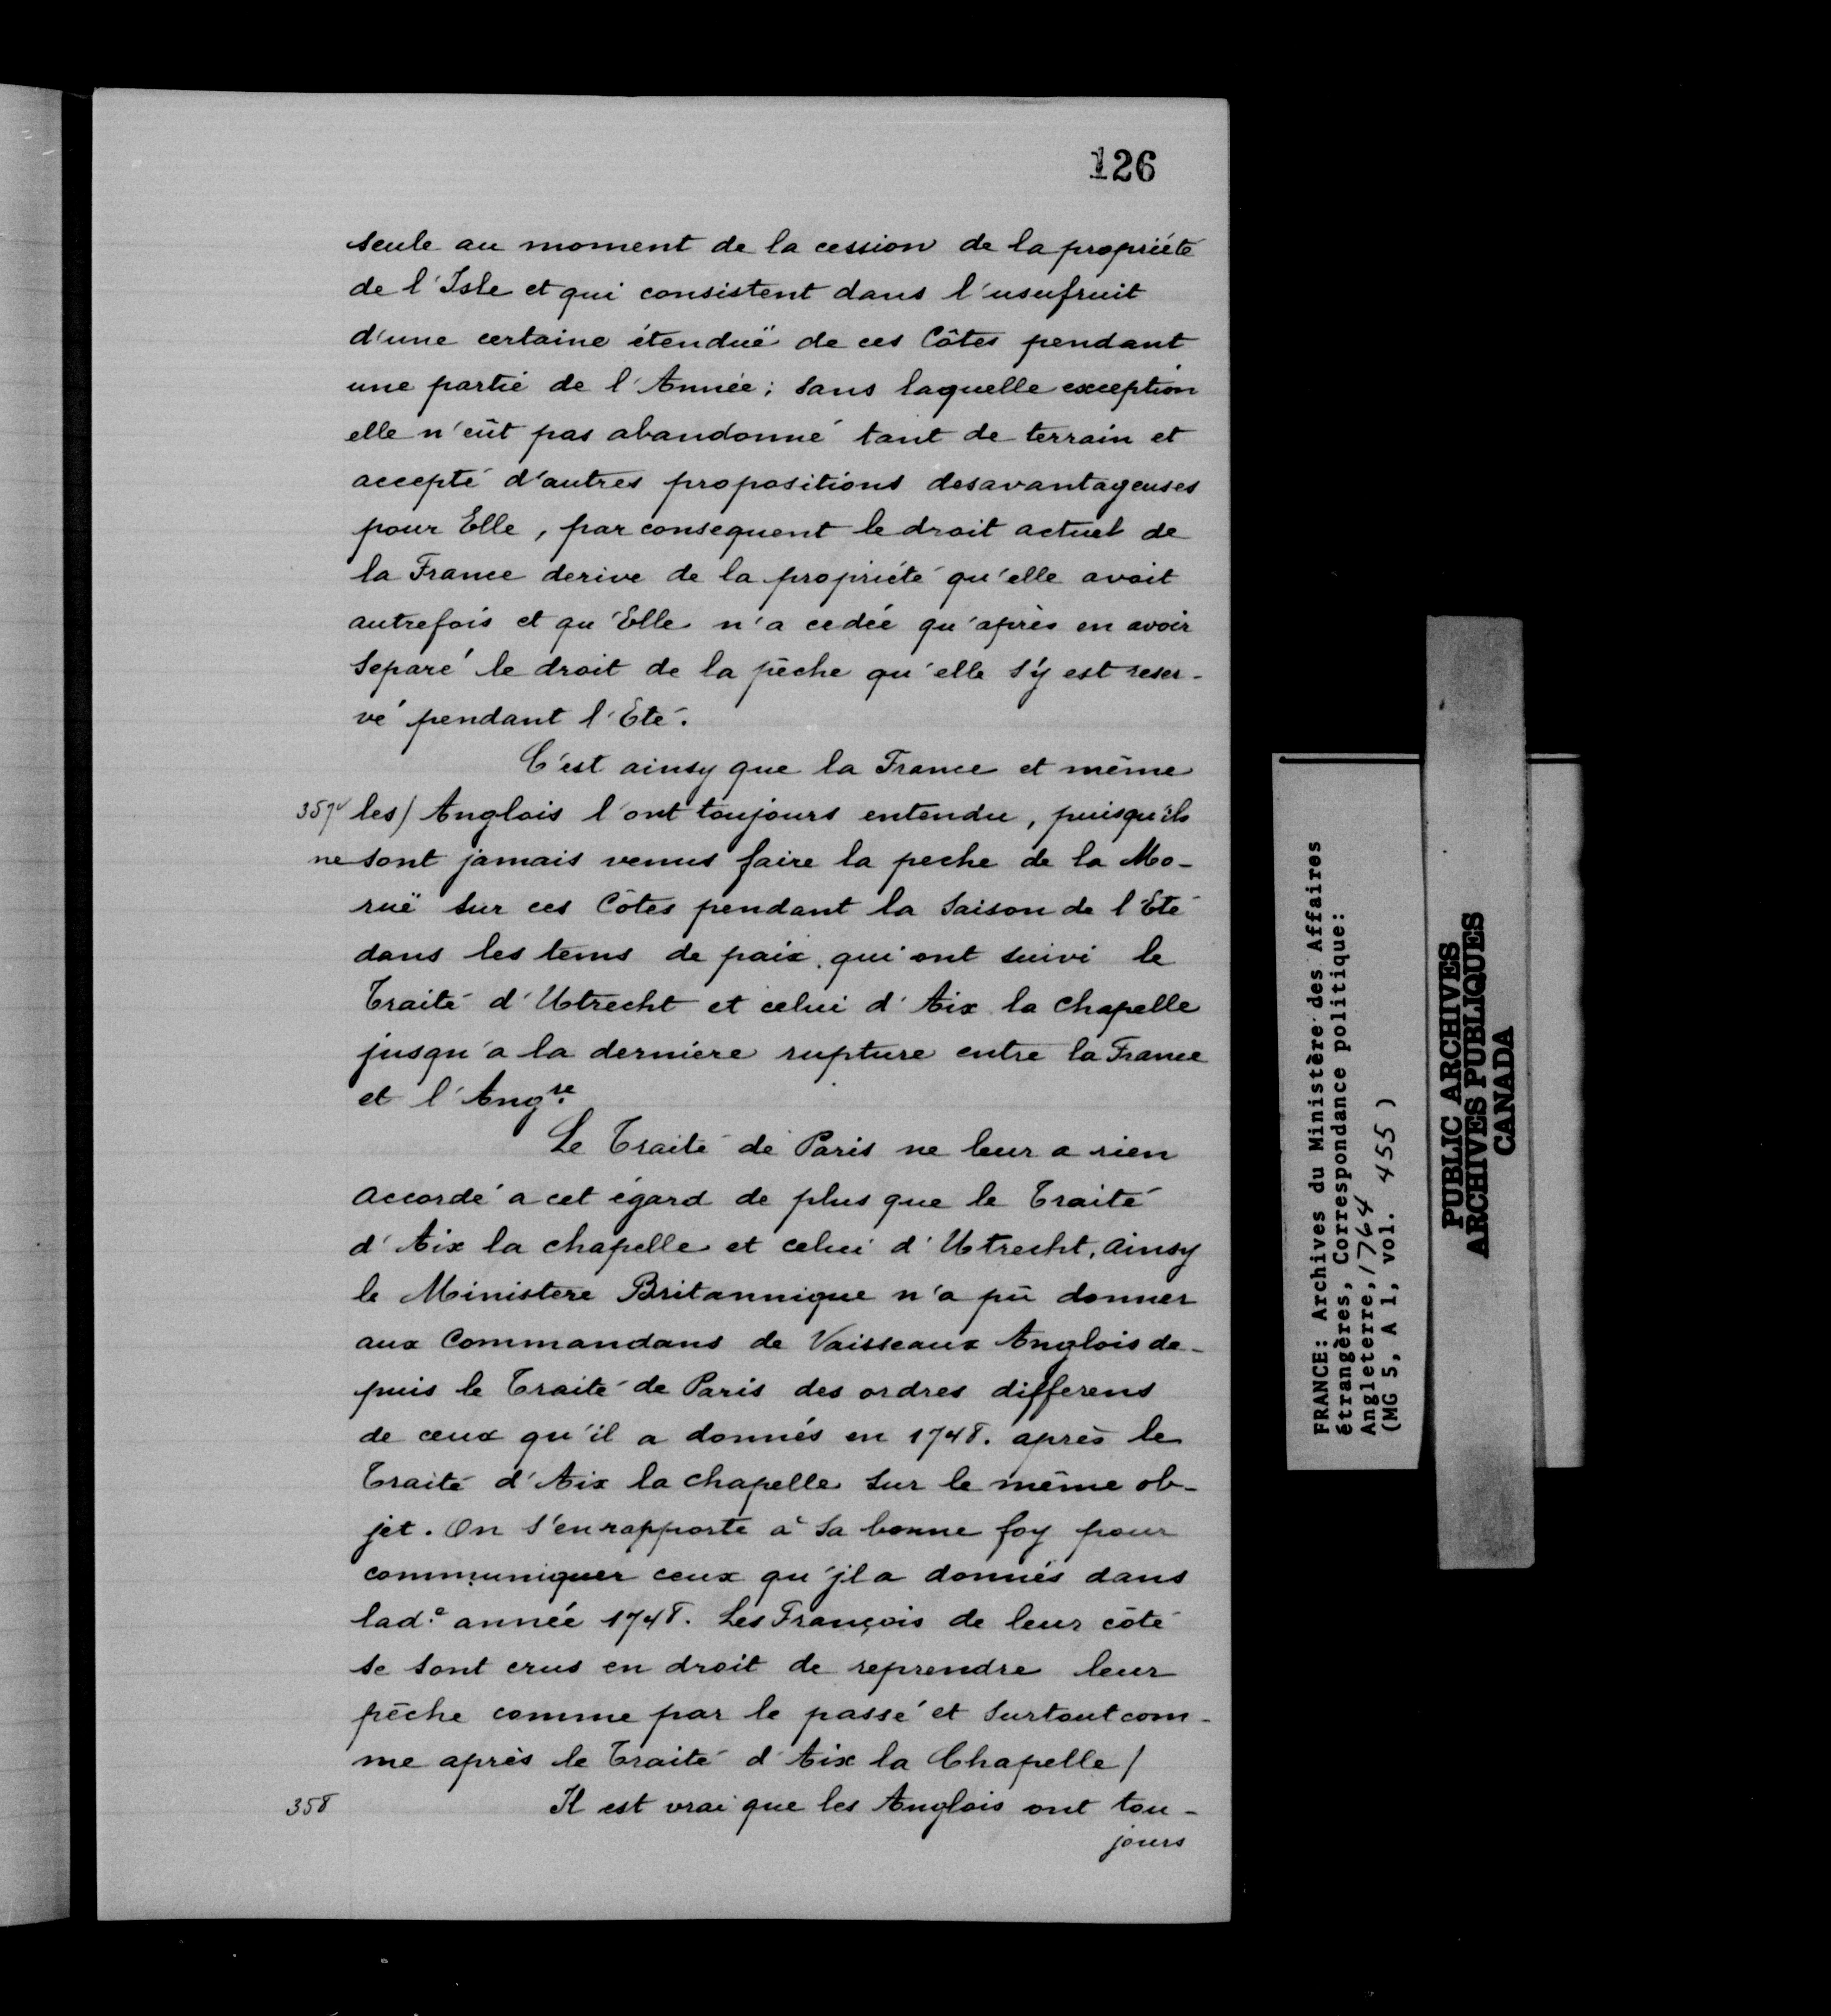 126
seule au moment de la cession de la propriété
de l'Isle et qui consistent dans l'usufruit
d'une certaine étenduë de ces Côtes pendant
une partie de l'Année; sans laquelle exception
elle n'eût pas abandonné tant de terrain et
accepté d'autres propositions desavantageuses
pour Elle, par consequent le droit actuel de
la France derive de la propriété qu'elle avoit
autrefois et qu'Elle n'a cedée qu'après en avoir
separé le droit de la pêche qu'elle s'y est reser-
vé pendant l'Eté.
C'est ainsy que la France et même
357v les/ Anglois l'ont toujours entendu, puisqu'ils
ne sont jamais venus faire la peche de la Mo-
ruë sur ces Côtes pendant la saison de l'Eté
dans les tems de paix qui ont suivi le
Traité d'Utrecht et celui d'Aix la chapelle
jusqu'a la derniere rupture entre la France
et l'Angre.
Le Traité de Paris ne leur a rien
accordé a cet égard de plus que le Traité
d'Aix la chapelle et celui d'Utrecht, ainsy
le Ministere Britannique n'a pû donner
aux Commandans de Vaisseaux Anglois de-
puis le Traité de Paris des ordres differens
de ceux qu'il a donnés en 1748. après le
Traité d'Aix la chapelle sur le même ob-
jet. On s'en rapporte à sa bonne foy pour
communiquer ceux qu'jl a donnés dans
lad.e année 1748. Les François de leur côté
se sont crus en droit de reprendre leur
pêche comme par le passé et surtout com-
me après le Traité d'Aix la Chapelle/
358 Il est vrai que les Anglois ont tou-
jours
FRANCE: Archives du Ministère des Affaires
étrangères, Correspondance politique:
Angleterre, 1764
(MG 5, A 1, vol. 455)
PUBLIC ARCHIVES
ARCHIVES PUBLIQUES
CANADA